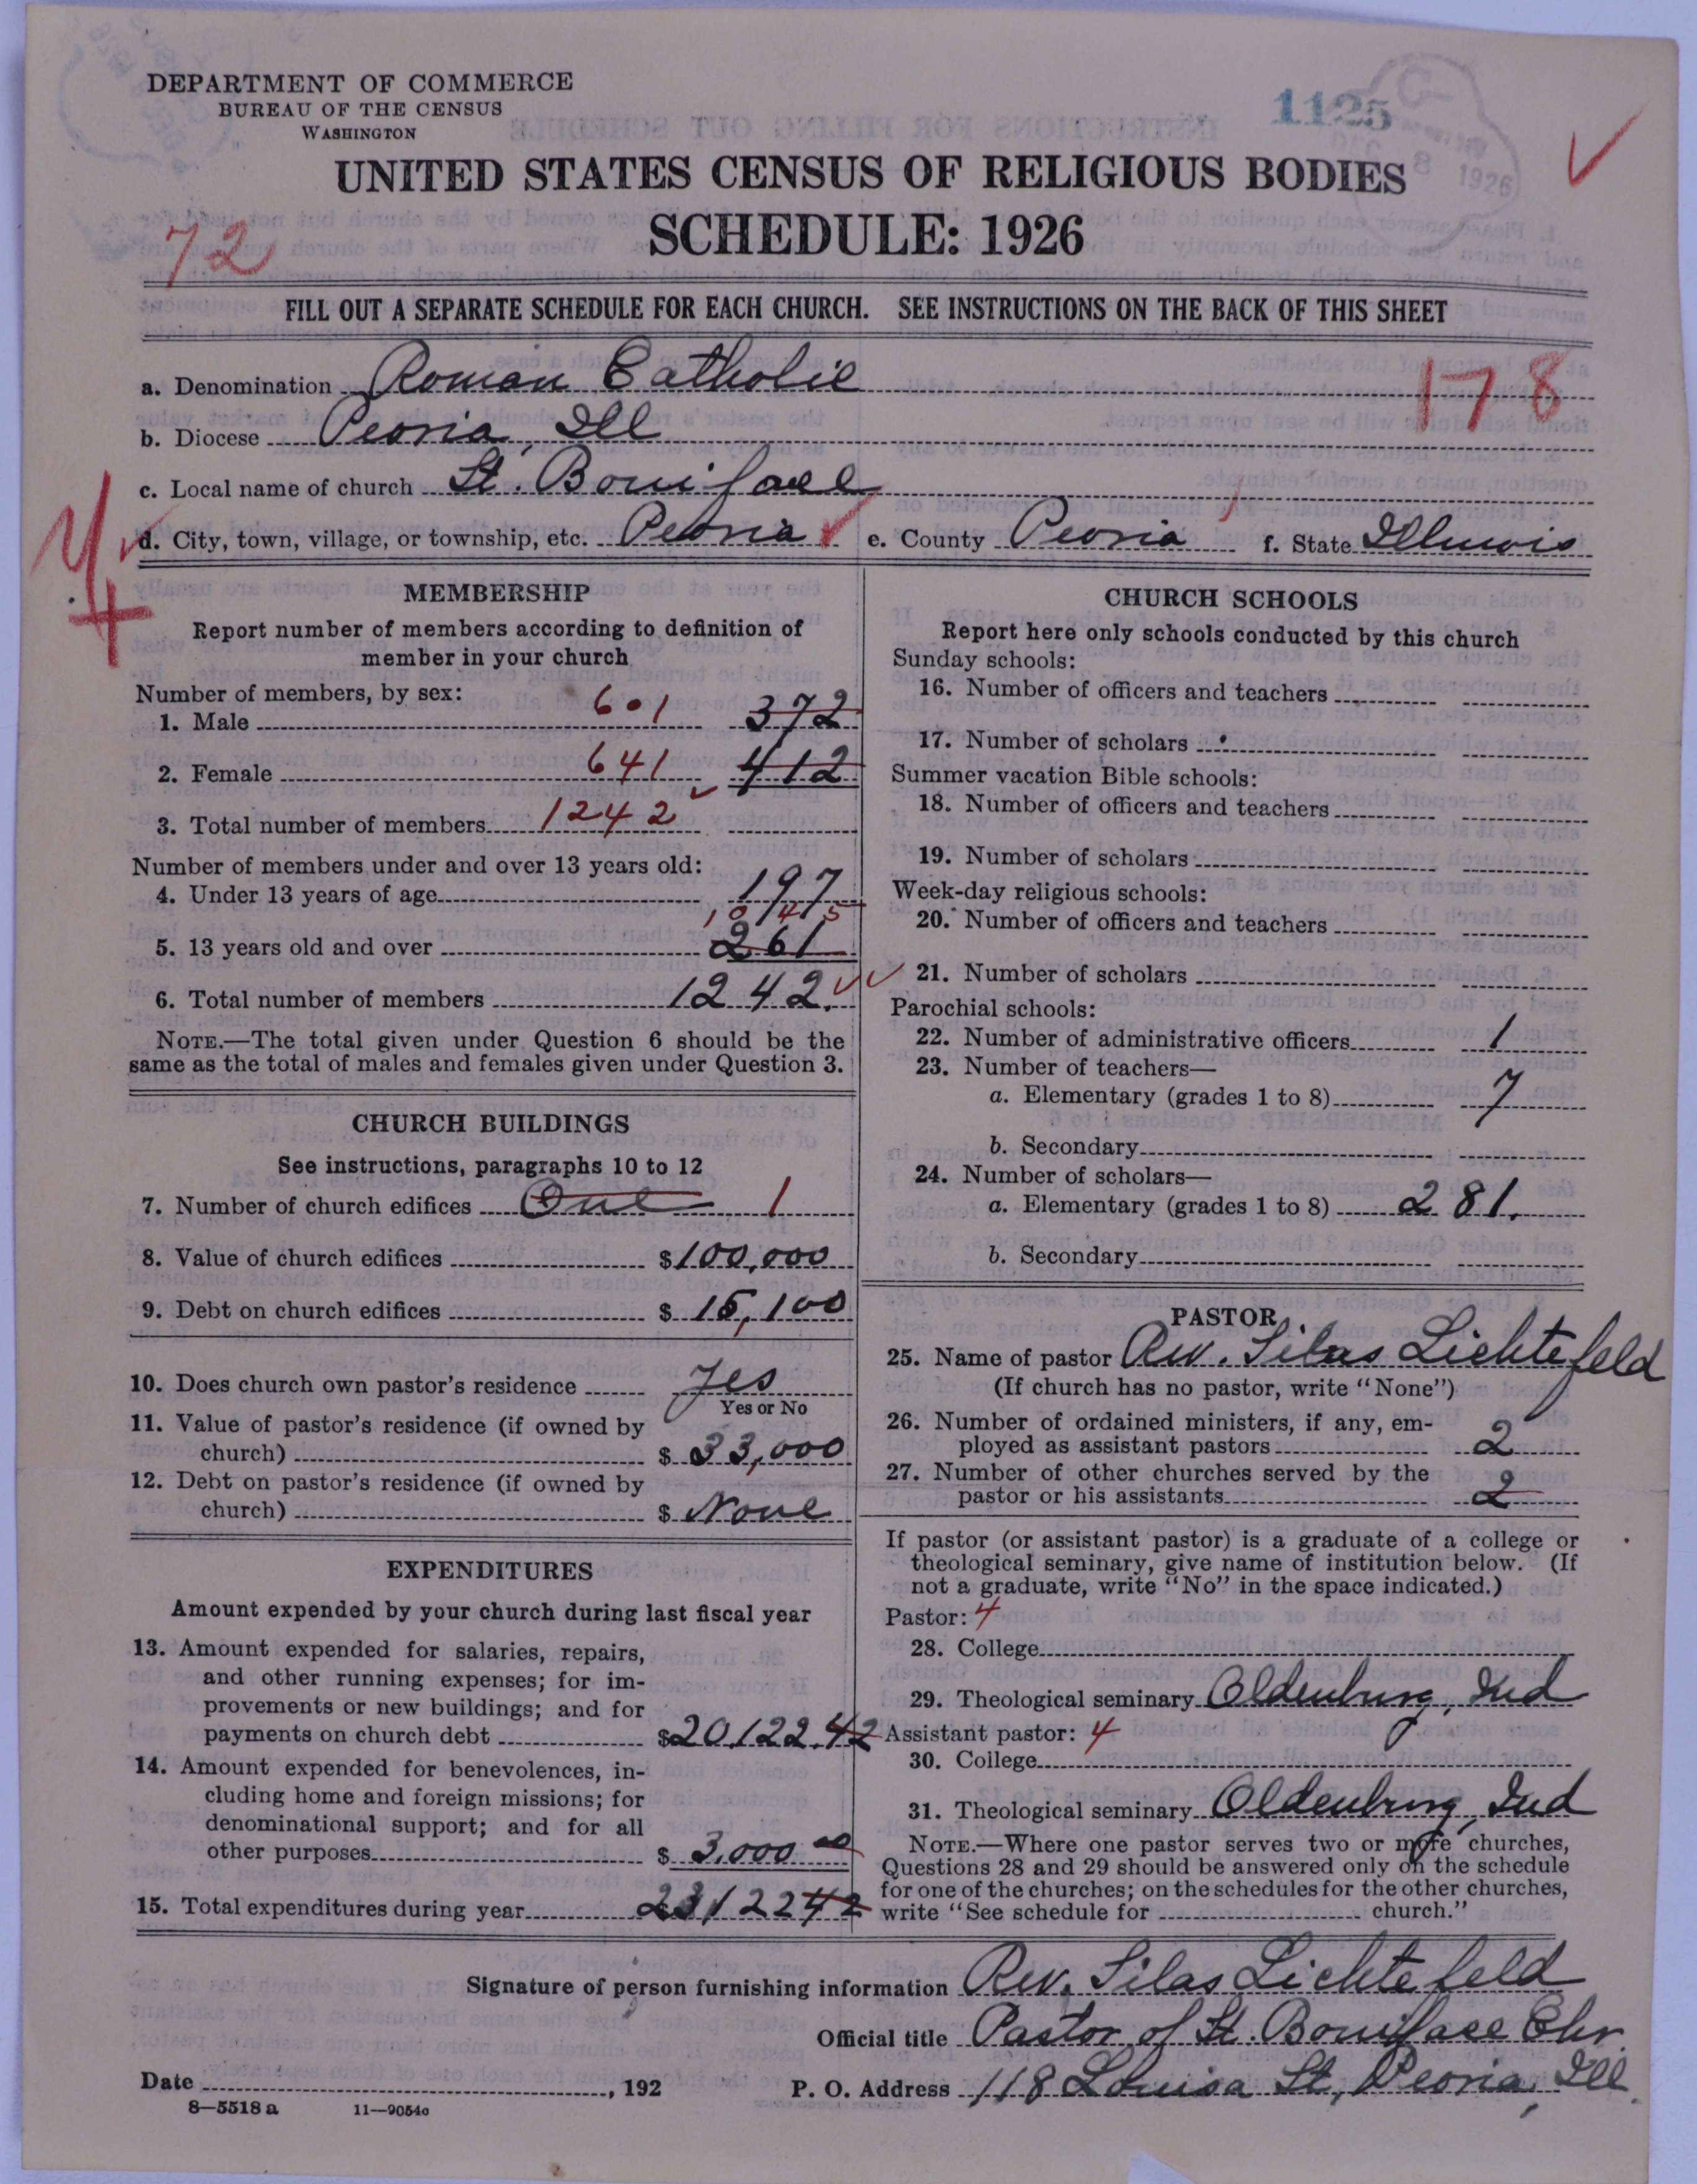 DEPARTMENT OF COMMERCE
BUREAU OF THE CENSUS
WASHINGTON
1125
DEC 8 1926
UNITED STATES CENSUS OF RELIGIOUS BODIES
SCHEDULE: 1926
72
FILL OUT A SEPARATE SCHEDULE FOR EACH CHURCH. SEE INSTRUCTIONS ON THE BACK OF THIS SHEET
a. Denomination Roman Catholic
178
b. Diocese Peoria, Ill
c. Local name of church St. Boniface
d. City, town, village, or township, etc. Peoria e. County Peoria f. State Illinois
MEMBERSHIP
Report number of members according to definition of
member in your church
Number of members, by sex:
1. Male 601 372
2. Female 641 412
3. Total number of members 1242
Number of members under and over 13 years old:
4. Under 13 years of age 197
1045
5. 13 years old and over 261
6. Total number of members 1242.
NOTE.—The total given under Question 6 should be the
same as the total of males and females given under Question 3.
CHURCH BUILDINGS
See instructions, paragraphs 10 to 12
7. Number of church edifices One 1
8. Value of church edifices $100,000
9. Debt on church edifices $ 15,100
10. Does church own pastor's residence Yes
Yes or No
11. Value of pastor's residence (if owned by
church) $ 33,000
12. Debt on pastor's residence (if owned by
church) $ None
EXPENDITURES
Amount expended by your church during last fiscal year
13. Amount expended for salaries, repairs,
and other running expenses; for im-
provements or new buildings; and for
payments on church debt $20,122.42
14. Amount expended for benevolences, in-
cluding home and foreign missions; for
denominational support; and for all
other purposes $ 3,000 00
15. Total expenditures during year 2312242
CHURCH SCHOOLS
Report here only schools conducted by this church
Sunday schools:
16. Number of officers and teachers
17. Number of scholars
Summer vacation Bible schools:
18. Number of officers and teachers
19. Number of scholars
Week-day religious schools:
20. Number of officers and teachers
21. Number of scholars
Parochial schools:
22. Number of administrative officers 1
23. Number of teachers—
a. Elementary (grades 1 to 8) 7
b. Secondary
24. Number of scholars—
a. Elementary (grades 1 to 8) 281.
b. Secondary
PASTOR
25. Name of pastor Rev. Silas Lichtefeld
(If church has no pastor, write "None")
26. Number of ordained ministers, if any, em-
ployed as assistant pastors 2
27. Number of other churches served by the
pastor or his assistants 2
If pastor (or assistant pastor) is a graduate of a college or
theological seminary, give name of institution below. (If
not a graduate, write "No" in the space indicated.)
Pastor: 4
28. College
29. Theological seminary Oldenburg, Ind
Assistant pastor: 4
30. College
31. Theological seminary Oldenburg, Ind
NOTE.—Where one pastor serves two or more churches,
Questions 28 and 29 should be answered only on the schedule
for one of the churches; on the schedules for the other churches,
write "See schedule for church."
Signature of person furnishing information Rev. Silas Lichtefeld
Official title Pastor of St. Boniface Chr.
Date , 192 P. O. Address 118 Louisa St, Peoria, Ill.
8—5518 a 11—9054